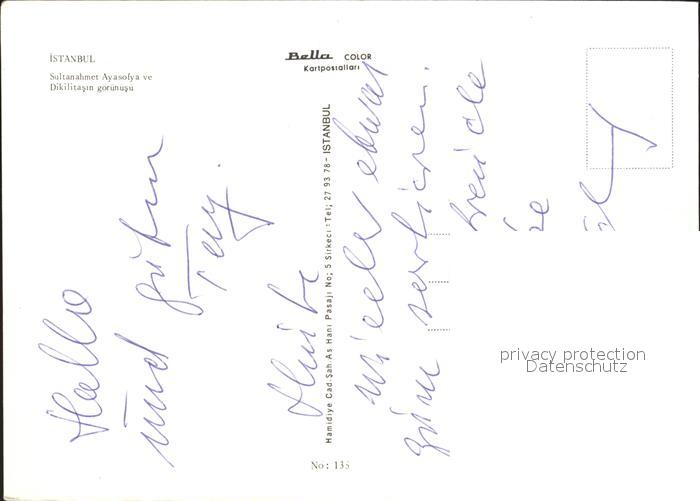 İSTANBUL
Sultanahmet Ayasofya ve
Dikilitaşın görünüşü
Bella COLOR
Kartpostalları
Hamidiye Cad. Şah. As Hanı Pasajı No; 5 Sirkeci: Tel; 27 93 78 - ISTANBUL
No: 135
Hallo
und guten
Tag.
Heute
wieder etwas
zum sortieren.
privacy protection
Datenschutz